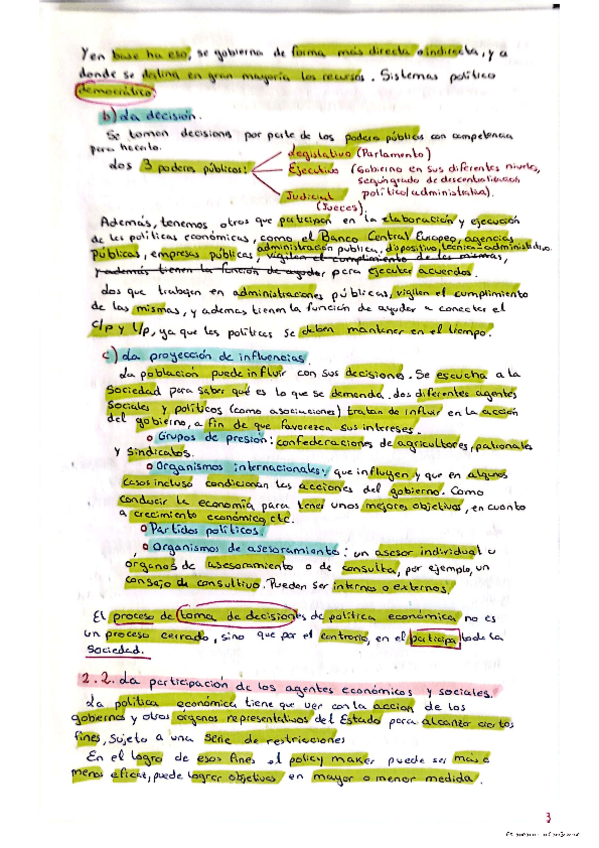 Y en base ha eso, se gobierna de forma más directa o indirecta, y a
donde se destina en gran mayoría los recursos. Sistemas político
democrático.
b) La decisión.
Se toman decisiones por parte de los poderes públicos con competencia
para hacerlo.
Los 3 poderes públicos:
Legislativo (Parlamento)
Ejecutivo (Gobierno en sus diferentes niveles,
según grado de descentralización
político/administrativa).
Judicial
(Jueces).
Además, tenemos otros que participan en la elaboración y ejecución
de las políticas económicas, como el Banco Central Europeo, agencias
administración pública, dispositivo técnico-administrativo.
Públicas, empresas públicas vigilen el cumplimiento de las mismas,
y además tienen la función de ayudar para ejecutar acuerdos.
Los que trabajen en administraciones públicas, vigilen el cumplimiento
de las mismas, y ademas tienen la función de ayudar a conectar el
C/p y L/p, ya que las políticas se deben mantener en el tiempo.
c) La proyección de influencias
La población puede influir con sus decisiones. Se escucha a la
Sociedad para saber qué es lo que se demanda. Los diferentes agentes
Sociales y políticos (como asociaciones) tratan de influir en la acción
del gobierno, a fin de que favorezca sus intereses.
Grupos de presión: confederaciones de agricultores, patronales
y Sindicatos.
Organismos internacionales: que influyen y que en algunos
casos incluso condicionan las acciones del gobierno. Como
conducir la economía para tener unos mejores objetivos, en cuanto
a crecimiento económico, etc.
Partidos políticos.
Organismos de asesoramiento: un asesor individual u
organos de asesoramiento o de consulta, por ejemplo, un
consejo de consultivo. Pueden ser internos o externos.
El proceso de toma de decisiones de política económica no es
un proceso cerrado, sino que por el contrario, en el participa toda la
Sociedad.
2.2. La participación de los agentes económicos y sociales.
La política económica tiene que ver con la acción de los
gobiernos y otros órganos representativos del Estado para alcanzar ciertos
fines, sujeto a una serie de restricciones
En el logro de esos fines el policy maker puede ser más o
menos eficaz, puede lograr objetivos en mayor o menor medida.
3